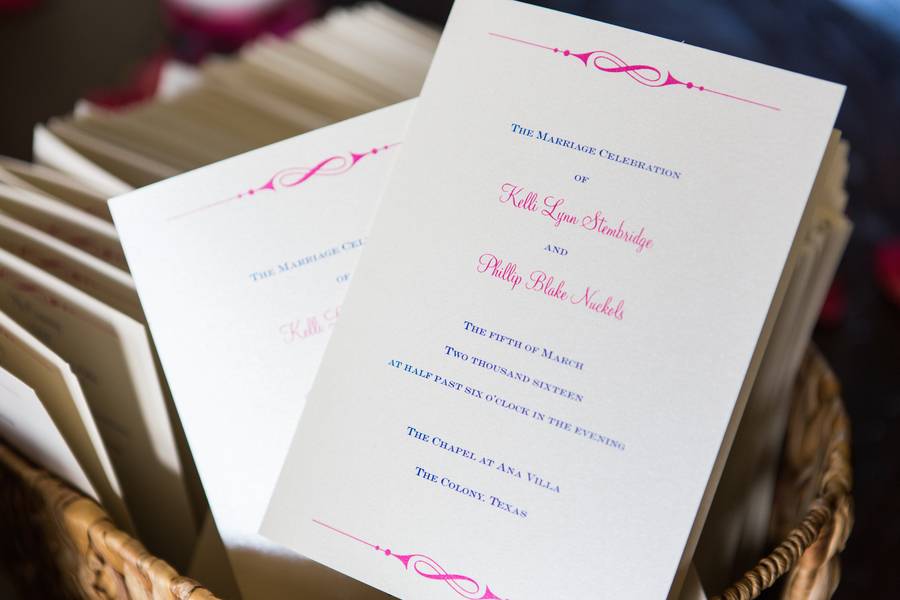 The Marriage Celebration
of
Kelli Lynn Stembridge
and
Phillip Blake Nuckols
The fifth of March
Two thousand sixteen
at half past six o'clock in the evening
The Chapel at Ana Villa
The Colony, Texas
The Marriage Cel
of
Kelli